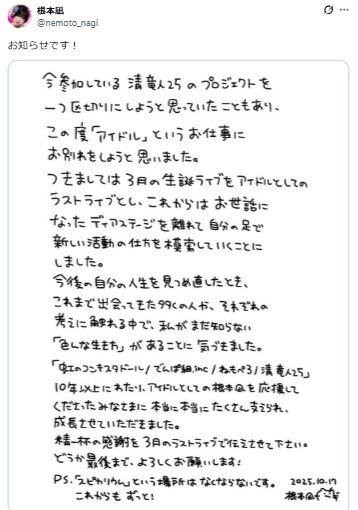 根本凪
@nemoto_nagi
お知らせです！
今参加している 清竜人25 のプロジェクトを
一つ区切りにしようと思っていたこともあり、
この度「アイドル」というお仕事に
お別れをしようと思いました。
つきましては 3月の生誕ライブをアイドルとしての
ラストライブとし、これからは お世話に
なった ディアステージを離れて 自分の足で
新しい活動の仕方を模索していくことに
しました。
今後の自分の人生を見つめ直したとき、
これまで出会ってきた沢山の人や、それぞれの
考えに触れる中で、私がまだ知らない
「色んな生き方」があることに 気づきました。
「虹のコンキスタドール/でんぱ組.inc/ねもぺろ/清竜人25」
10年以上にわたり、アイドルとしての根本凪を応援して
くださったみなさまに 本当に本当に たくさん支えられ、
成長させていただきました。
精一杯の感謝を 3月のラストライブで伝えさせて下さい。
どうか最後まで、よろしくお願いします!
P.S.「スピカリウム」という場所は なくならないです。
これからも ずっと!
2025.10.17
根本凪